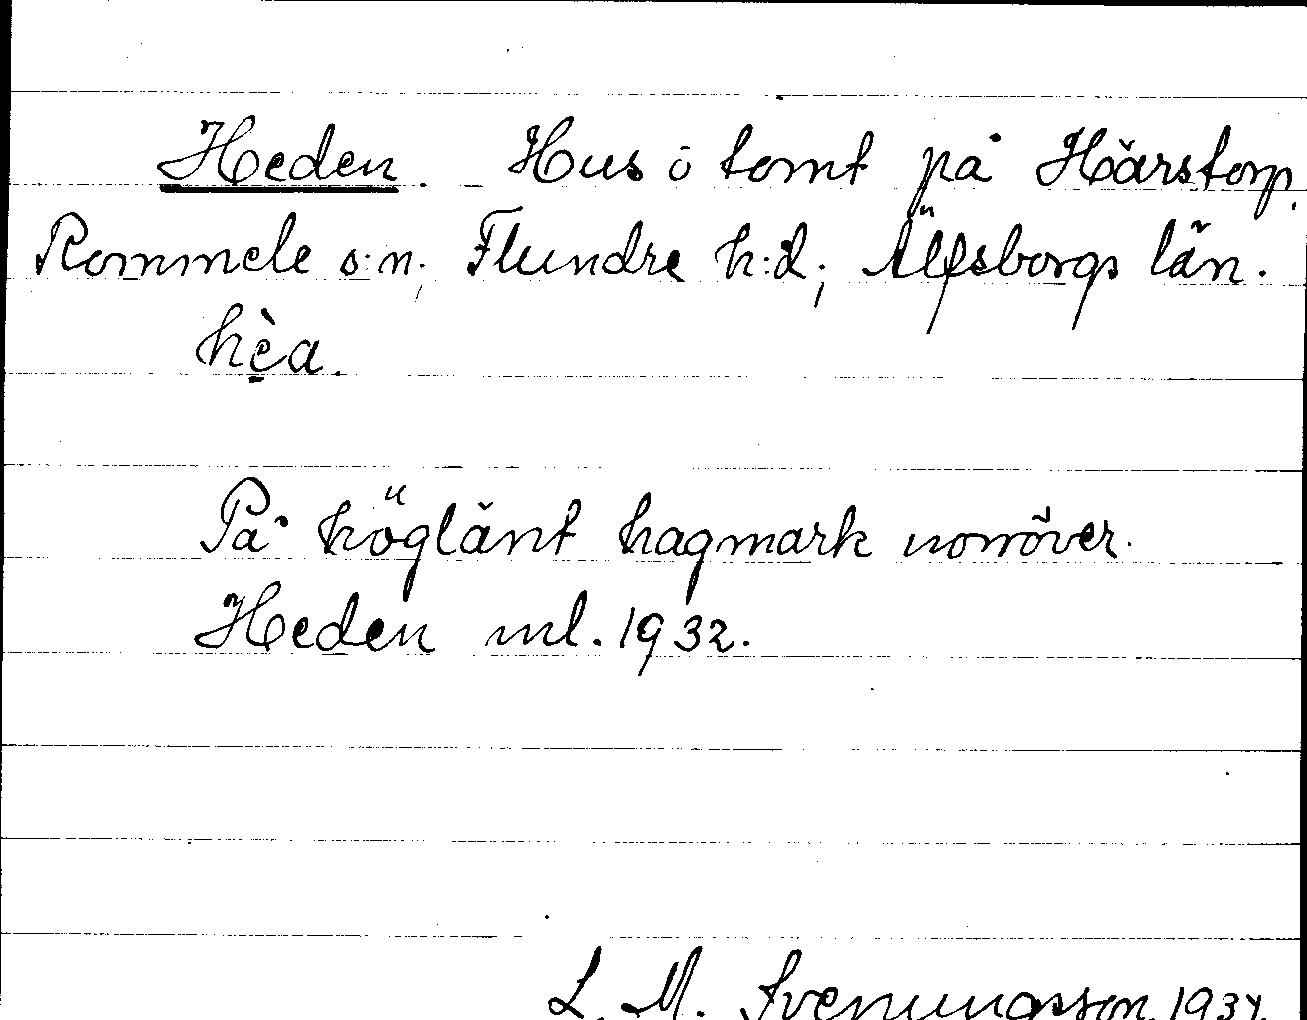 Heden. Hus o tomt på Härstorp,
Rommele s:n; Flundre h:d; Älfsborgs län.
hèa.
På höglänt hagmark norröver.
Heden ml. 1932.
L. M. Svenungsson 1934.